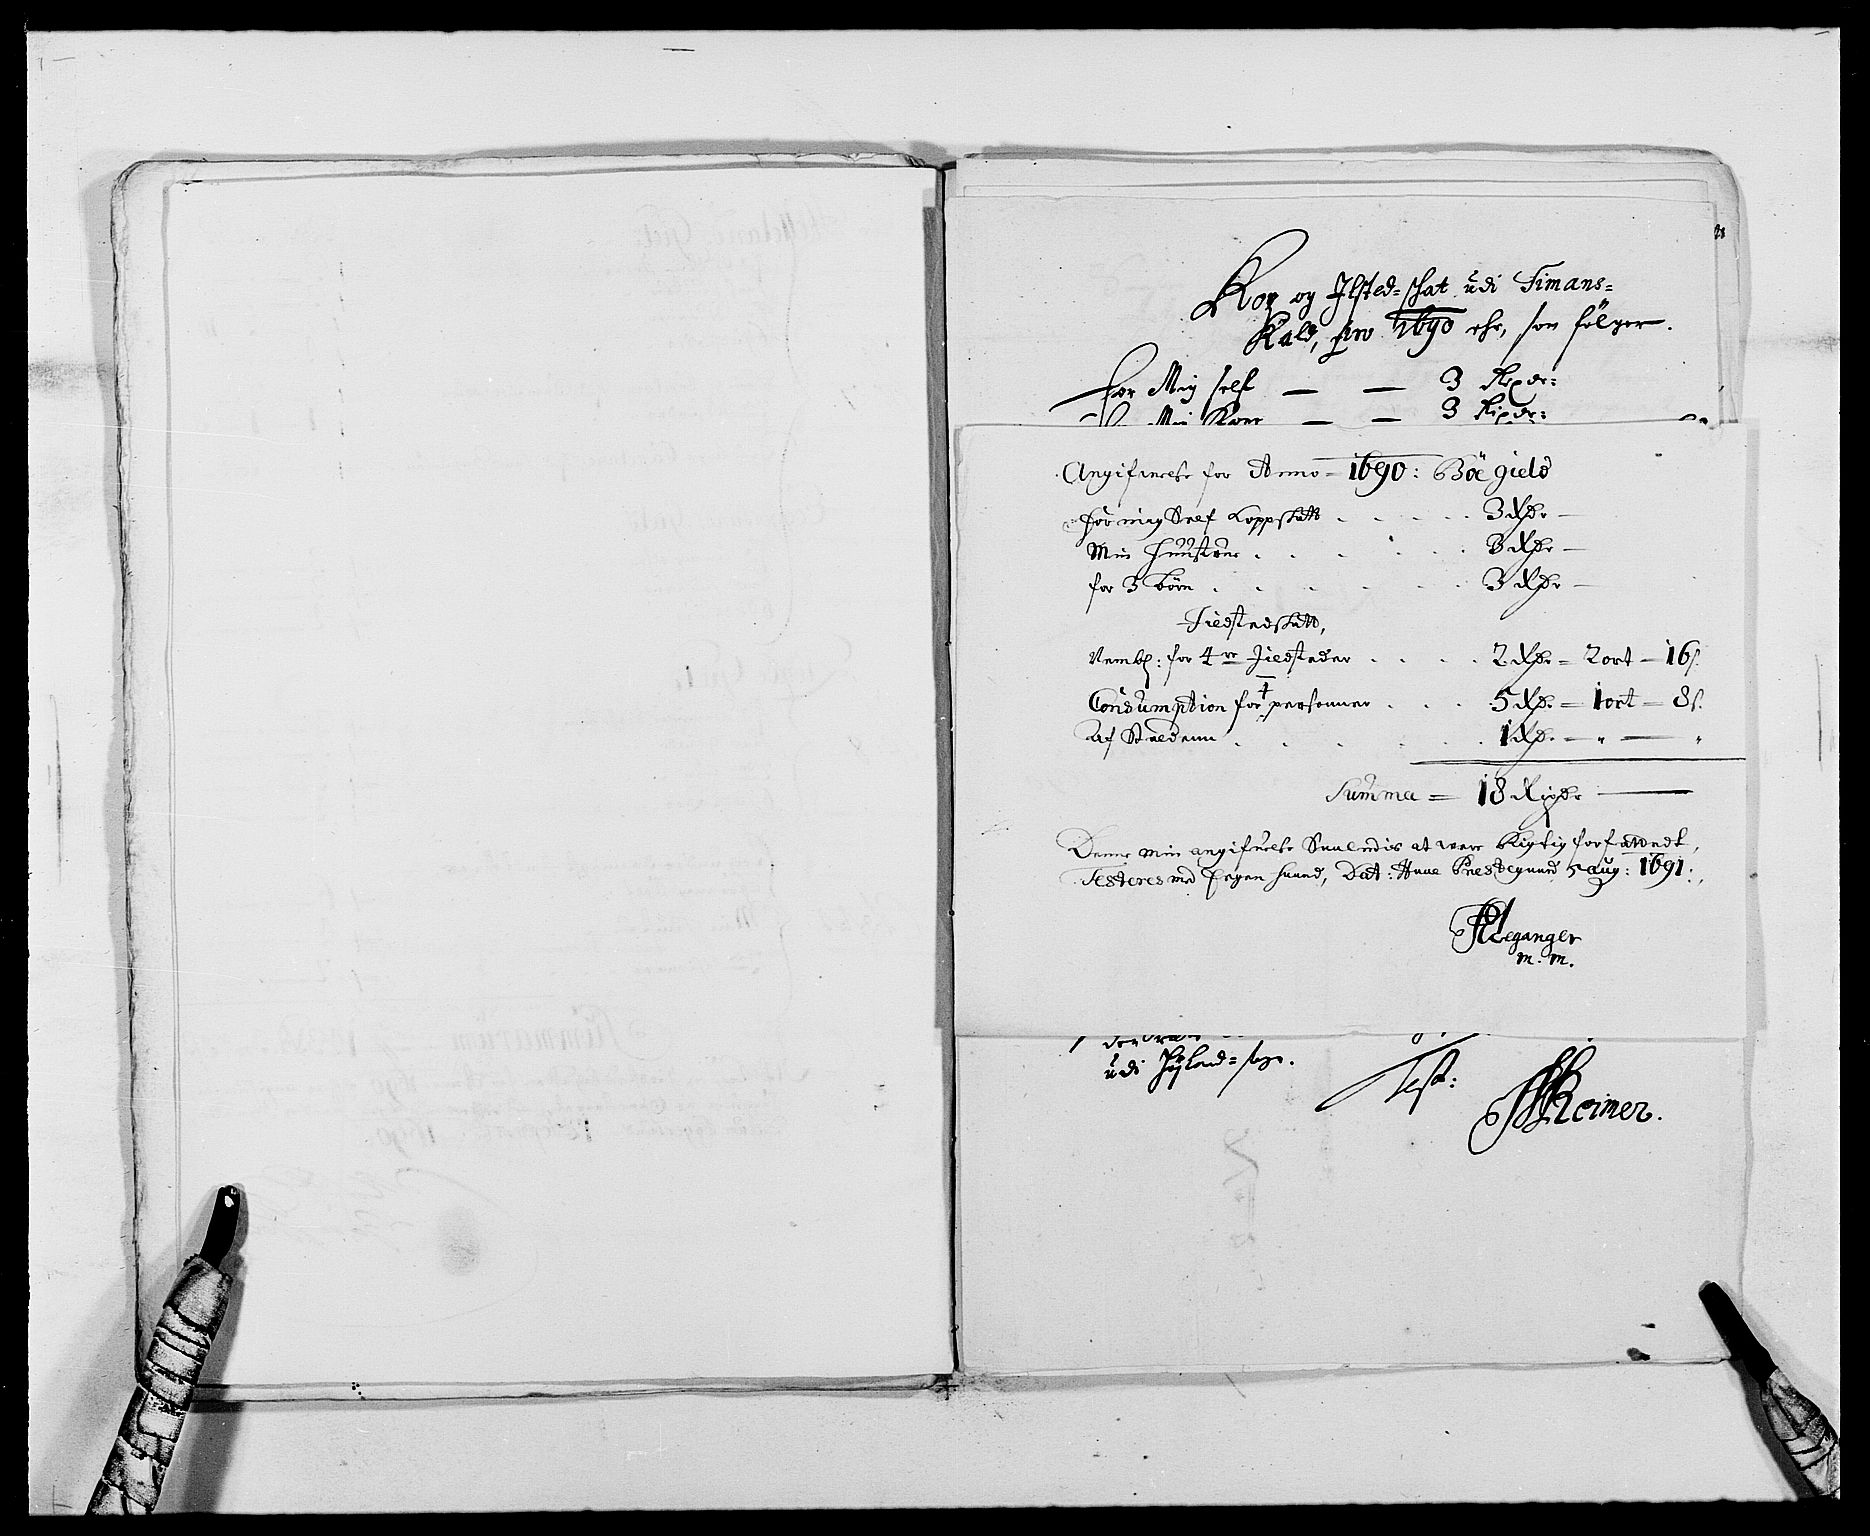 Kop og Ilsted-skat udi Timans-
Kald, pro 1690 ehr, som følger.
For Mig self — — 3 Rixdr:
Min Kone — — 3 Rixdr:
Angifvelse for Anno - 1690: Böe gield
For mig Self Koppskatt . . . . 3 Rdr —
Min Huustrue . . . . . 3 Rdr —
for 3 börn . . . . . 3 Rdr —
Jldstedskatt,
Nembl: for 4re Jldsteder . . . . 2 Rdr = 2 ort — 16 s.
Consumption for 4 personner . . . 5 Rdr. = 1 ort — 8 s.
. . . . . 1 Rdr. — " — "
Summa = 18 Rixdr —
Denne min angifvelse Saaledis at were Rigtig forfattedt,
Testeres med Eegen haand, Dat: Præstegaard 5 aug: 1691.
Leganger
m. m.
udi Høyland-sogn.
Test:
Reimer.